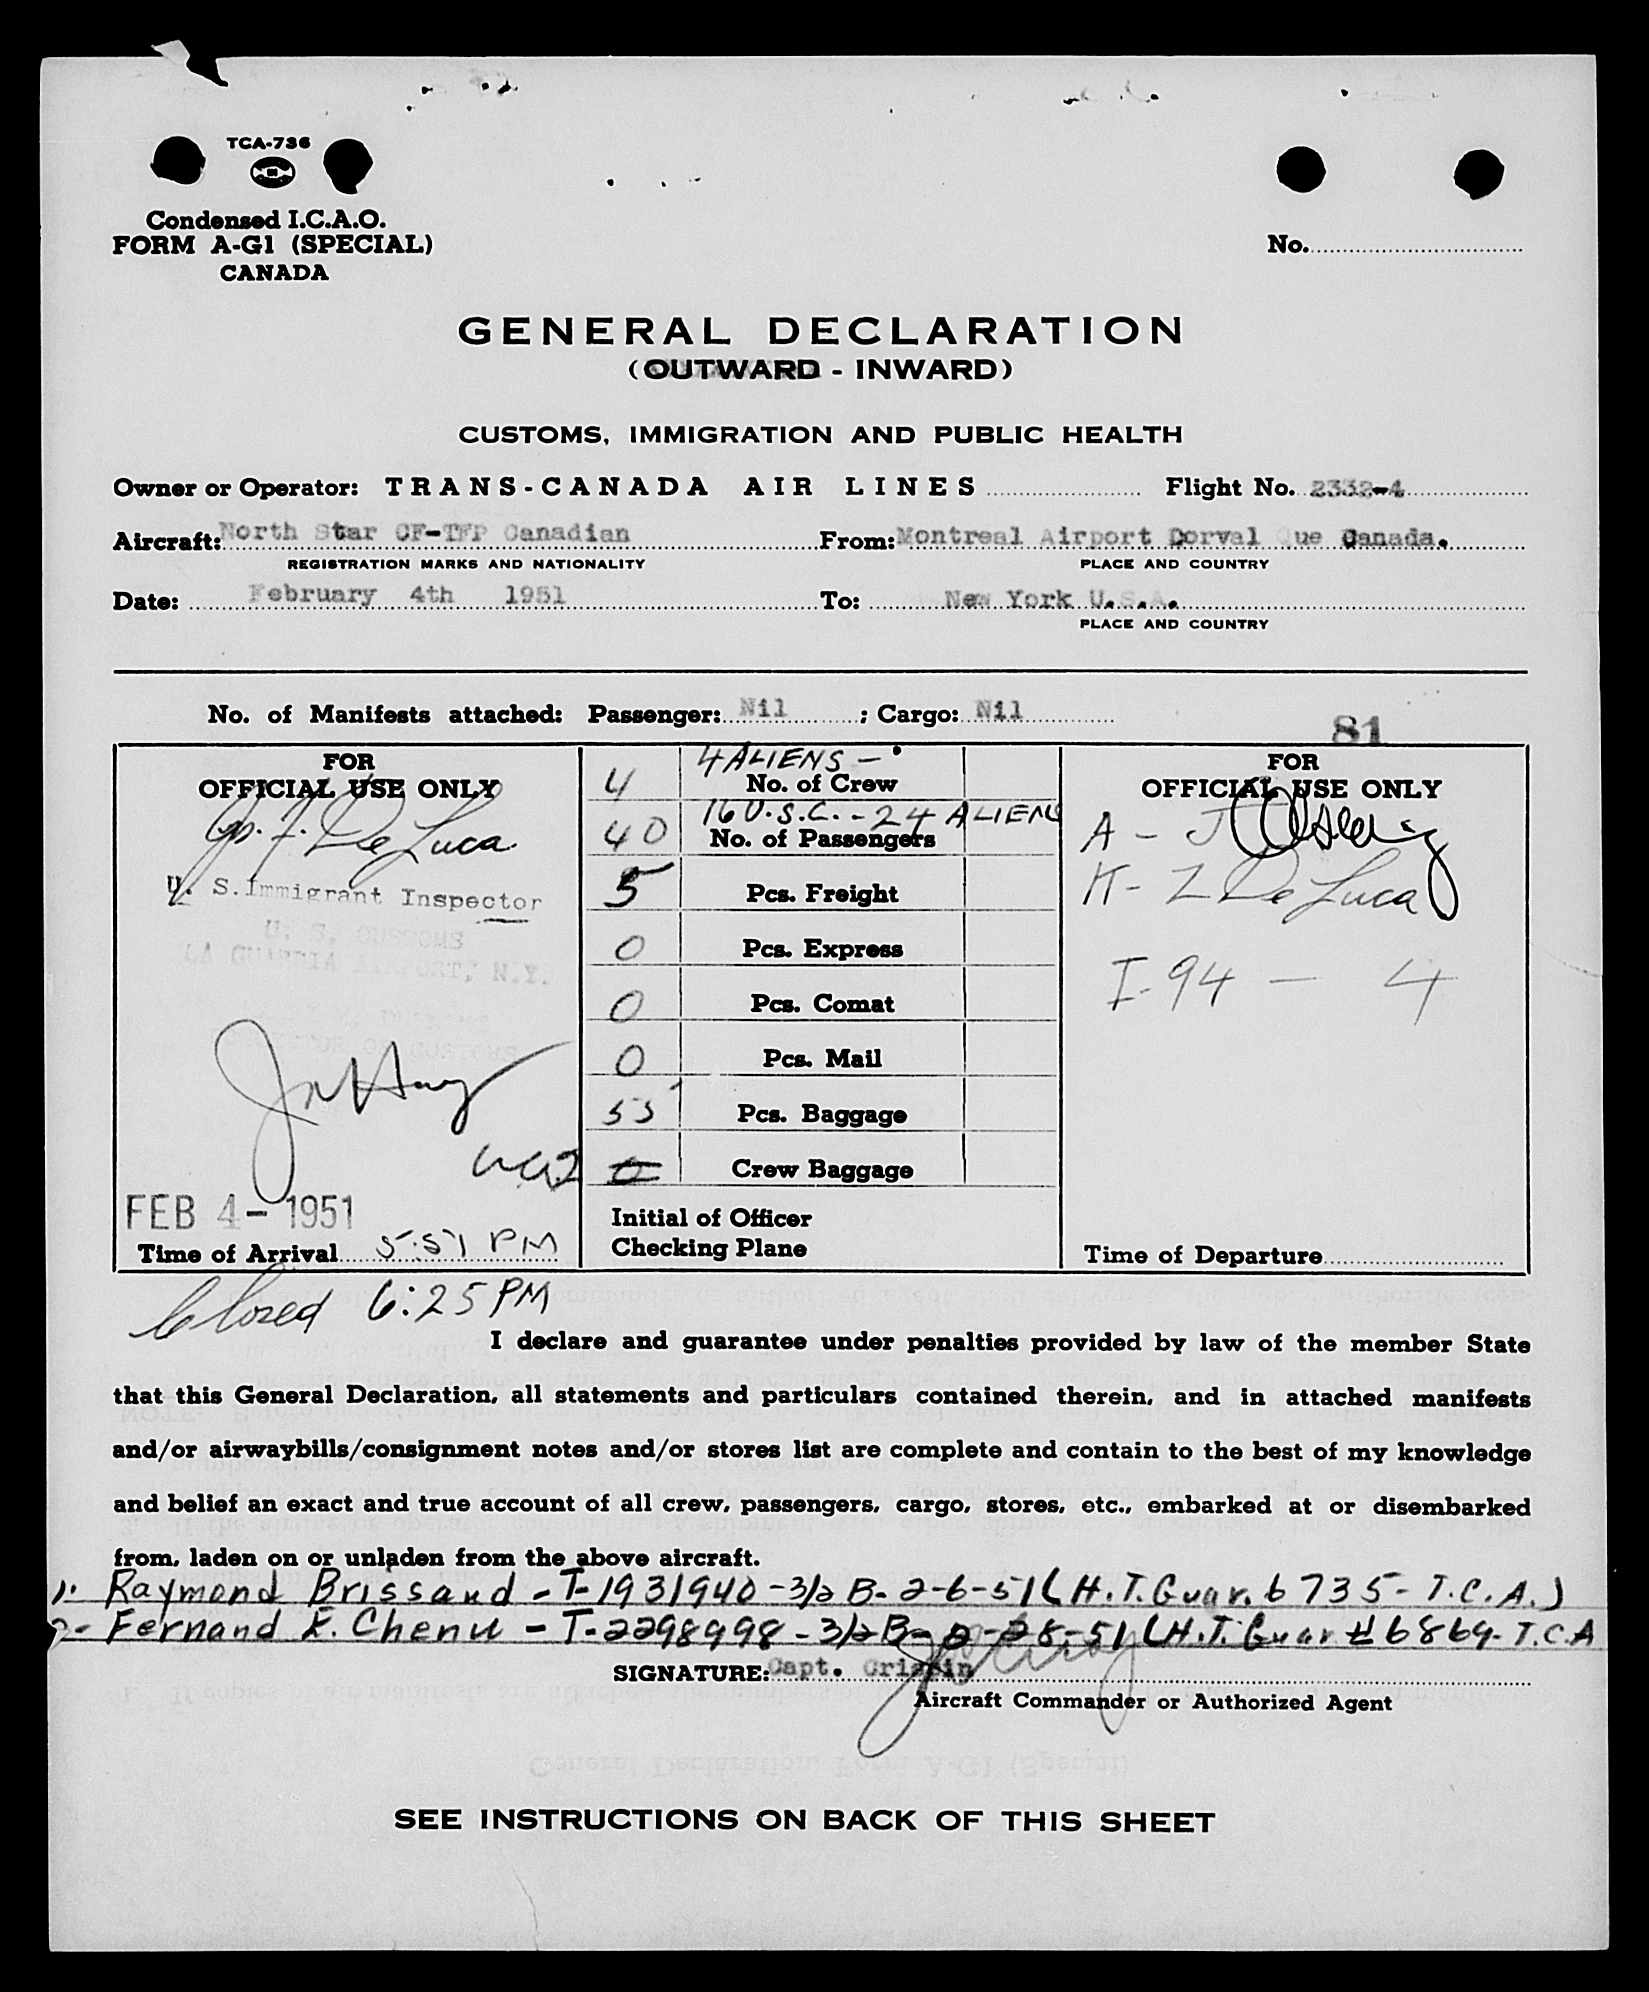 TCA-736
Condensed I.C.A.O.
FORM A-G1 (SPECIAL)
CANADA
No.
GENERAL DECLARATION
(OUTWARD - INWARD)
CUSTOMS, IMMIGRATION AND PUBLIC HEALTH
Owner or Operator: TRANS-CANADA AIR LINES Flight No. 2332-4
Aircraft: North Star CF-TFP Canadian From: Montreal Airport Dorval Que Canada.
REGISTRATION MARKS AND NATIONALITY PLACE AND COUNTRY
Date: February 4th 1951 To: New York U.S.A.
PLACE AND COUNTRY
No. of Manifests attached: Passenger: Nil ; Cargo: Nil
81
FOR
OFFICIAL USE ONLY
Jos. F. De Luca
U. S. Immigrant Inspector
U. S. CUSTOMS
LA GUARDIA AIRPORT, N.Y.
OF CUSTOMS
FEB 4 - 1951
Time of Arrival 5:51 PM
4 ALIENS -
4 No. of Crew
16 U.S.C. - 24 ALIENS
40 No. of Passengers
5 Pcs. Freight
0 Pcs. Express
0 Pcs. Comat
0 Pcs. Mail
55 Pcs. Baggage
Crew Baggage
Initial of Officer
Checking Plane
FOR
OFFICIAL USE ONLY
A - J
K - L De Luca
I-94 - 4
Time of Departure
Closed 6:25 PM
I declare and guarantee under penalties provided by law of the member State
that this General Declaration, all statements and particulars contained therein, and in attached manifests
and/or airwaybills/consignment notes and/or stores list are complete and contain to the best of my knowledge
and belief an exact and true account of all crew, passengers, cargo, stores, etc., embarked at or disembarked
from, laden on or unladen from the above aircraft.
1. Raymond Brissaud - T-1931940 - 3/2 B - 2-6-51 (H.T. Guar. 6735 - T.C.A.)
2- Fernand E. Chenu - T-2298998 - 3/2 B - 2-28-51 (H.T. Guar # 6869- T.C.A
SIGNATURE: Capt. Crispin
Aircraft Commander or Authorized Agent
SEE INSTRUCTIONS ON BACK OF THIS SHEET